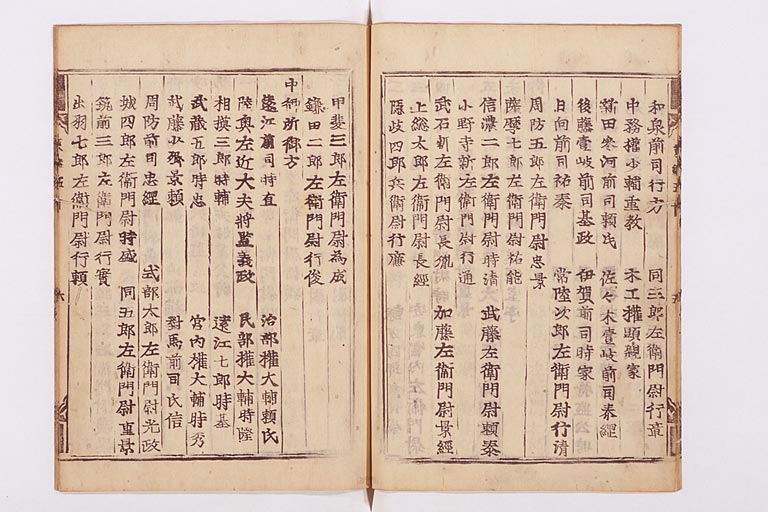 和泉前司行方　同三郎左衛門尉行章
中務権少輔重教　木工権頭親家
新田参河前司頼氏　佐々木壹岐前司泰綱
後藤壹岐前司基政　伊賀前司時家
日向前司祐泰　常陸次郎左衛門尉行清
周防五郎左衛門尉忠景
薩摩七郎左衛門尉祐能
信濃二郎左衛門尉時清　武藤左衛門尉頼泰
小野寺新左衛門尉行通
武石新左衛門尉長胤　加藤左衛門尉景経
上総太郎左衛門尉長経
隠岐四郎兵衛尉行廉
甲斐三郎左衛門尉為成
鎌田二郎左衛門尉行俊
中御所御方
遠江前司時直　治部権大輔頼氏
陸奥左近大夫将監義政　民部権大輔時隆
相摸三郎時輔　遠江七郎時基
武蔵五郎時忠　宮内権大輔時秀
武藤少卿景頼　對馬前司氏信
周防前司忠經　式部太郎左衛門尉光政
城四郎左衛門尉時盛　同五郎左衛門尉重景
筑前三郎左衛門尉行實
出羽七郎左衛門尉行頼